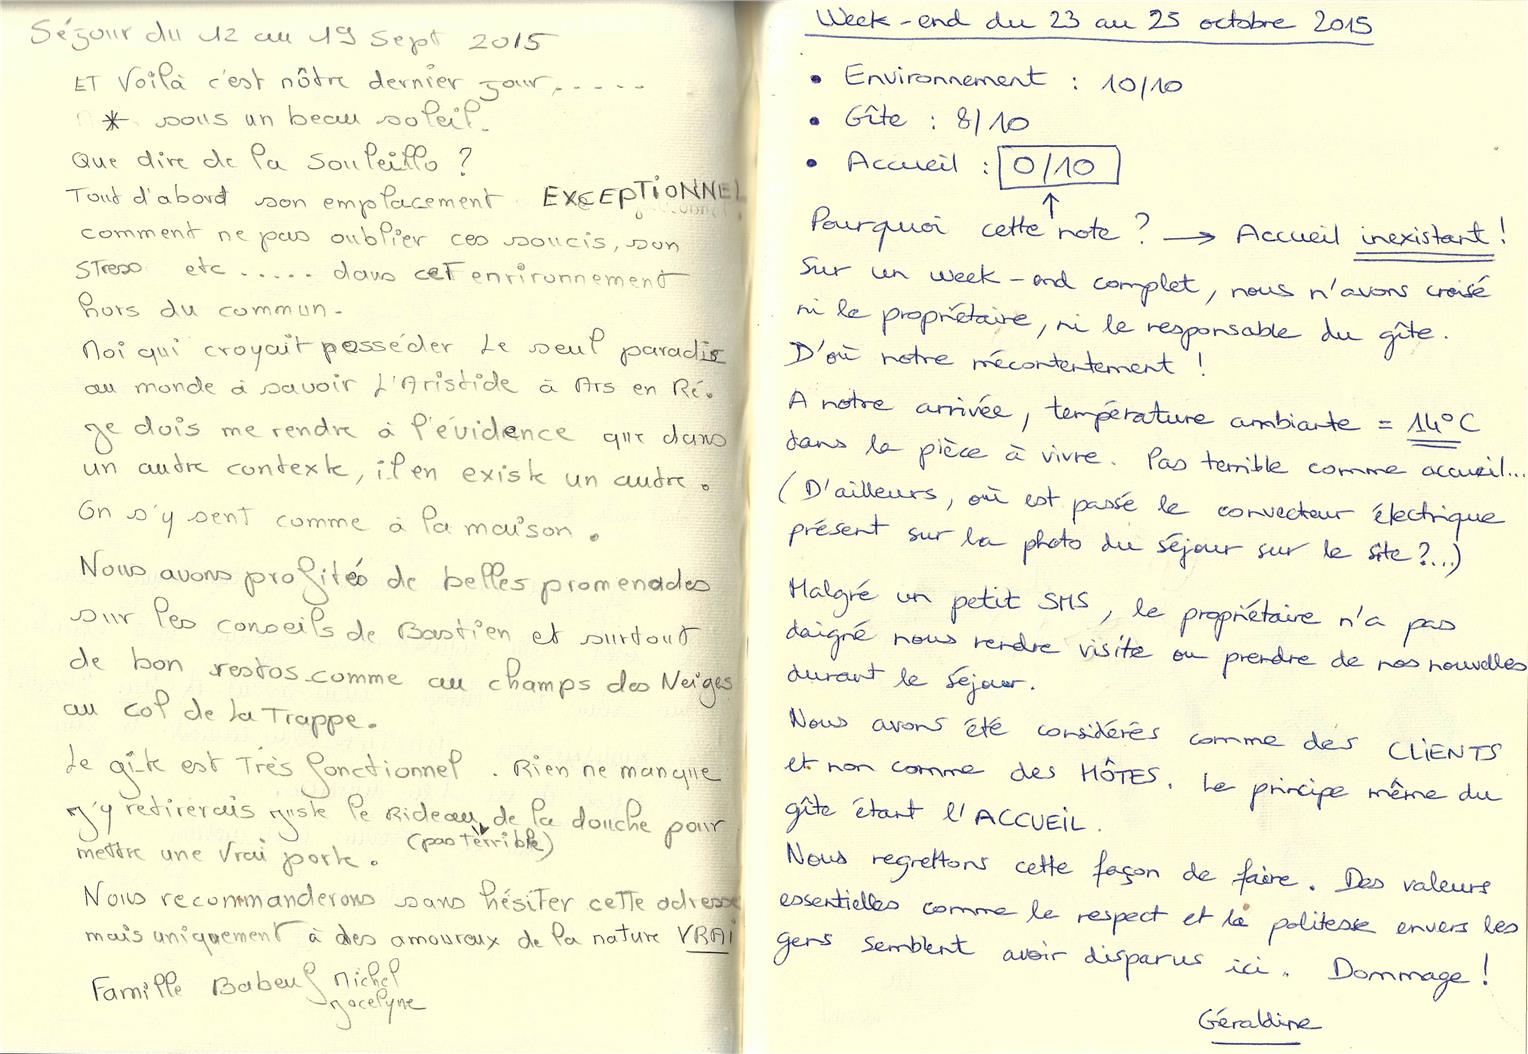 Séjour du 12 au 19 Sept 2015
ET Voilà c'est nôtre dernier jour......
* sous un beau soleil.
Que dire de la Souleillo ?
Tout d'abord son emplacement EXCEPTIONNEL
comment ne pas oublier ces soucis, son
stress etc ..... dans cet environnement
hors du commun.
Moi qui croyait posséder Le seul paradis
au monde à savoir L'Aristide à Ars en Ré.
Je dois me rendre à l'évidence que dans
un autre contexte, il en existe un autre.
On s'y sent comme à la maison.
Nous avons profités de belles promenades
sur les conseils de Bastien et surtout
de bon restos comme au champs des Neiges
au col de La Trappe.
Le gîte est Très fonctionnel. Rien ne manque
j'y retirerais juste le Rideau de la douche pour
(pas terrible)
mettre une Vrai porte.
Nous recommanderons sans hésiter cette adresse
mais uniquement à des amoureux de la nature VRAI
Famille Babeuf Michel
Jocelyne
Week-end du 23 au 25 octobre 2015
• Environnement : 10/10
• Gîte : 8/10
• Accueil : 0/10
↑
Pourquoi cette note ? → Accueil inexistant !
Sur un week-end complet, nous n'avons croisé
ni le propriétaire, ni le responsable du gîte.
D'où notre mécontentement !
A notre arrivée, température ambiante = 14°C
dans la pièce à vivre. Pas terrible comme accueil...
(D'ailleurs, où est passé le convecteur électrique
présent sur la photo du séjour sur le site ?...)
Malgré un petit SMS, le propriétaire n'a pas
daigné nous rendre visite ou prendre de nos nouvelles
durant le séjour.
Nous avons été considérés comme des CLIENTS
et non comme des HÔTES. Le principe même du
gîte étant l'ACCUEIL.
Nous regrettons cette façon de faire. Des valeurs
essentielles comme le respect et la politesse envers les
gens semblent avoir disparus ici. Dommage !
Géraldine